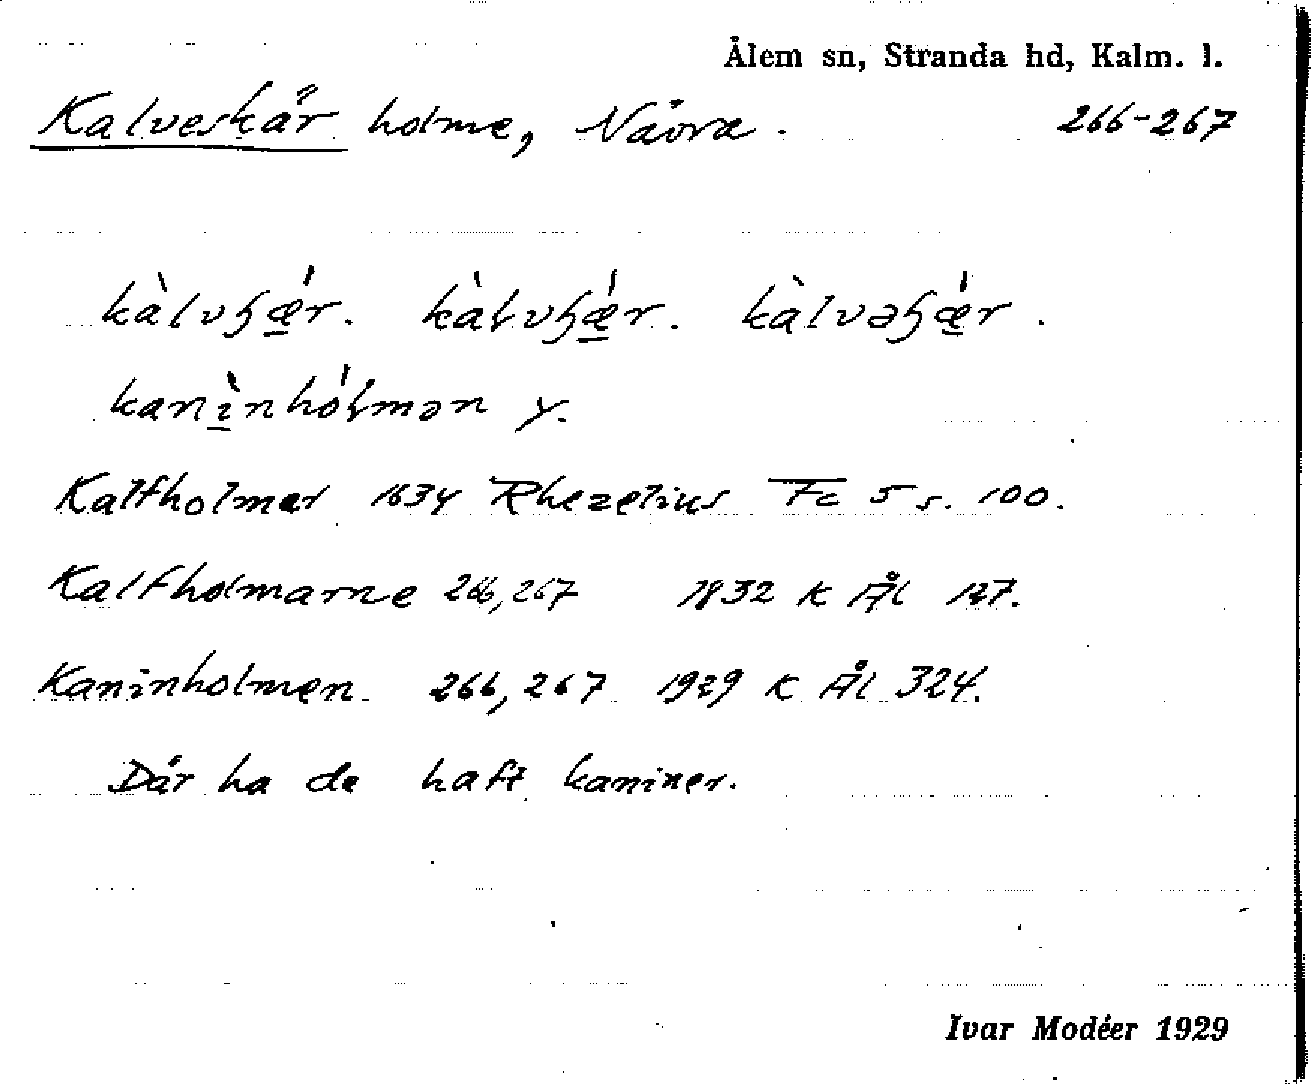 Ålem sn, Stranda hd, Kalm. l.
Kalveskär holme, Nävra. 266-267
kàlvɧǽ̲r. kàɫvɧǽ̲r. kàlvəɧǽ̲r.
kanì̲nhóɫmən y.
Kalfholmer 1634 Rhezelius Fc 5 s. 100.
Kalfholmarne 266,267 1832 K Ål 147.
Kaninholmen 266,267 1929 K Ål 324.
Där ha de haft kaniner.
Ivar Modéer 1929